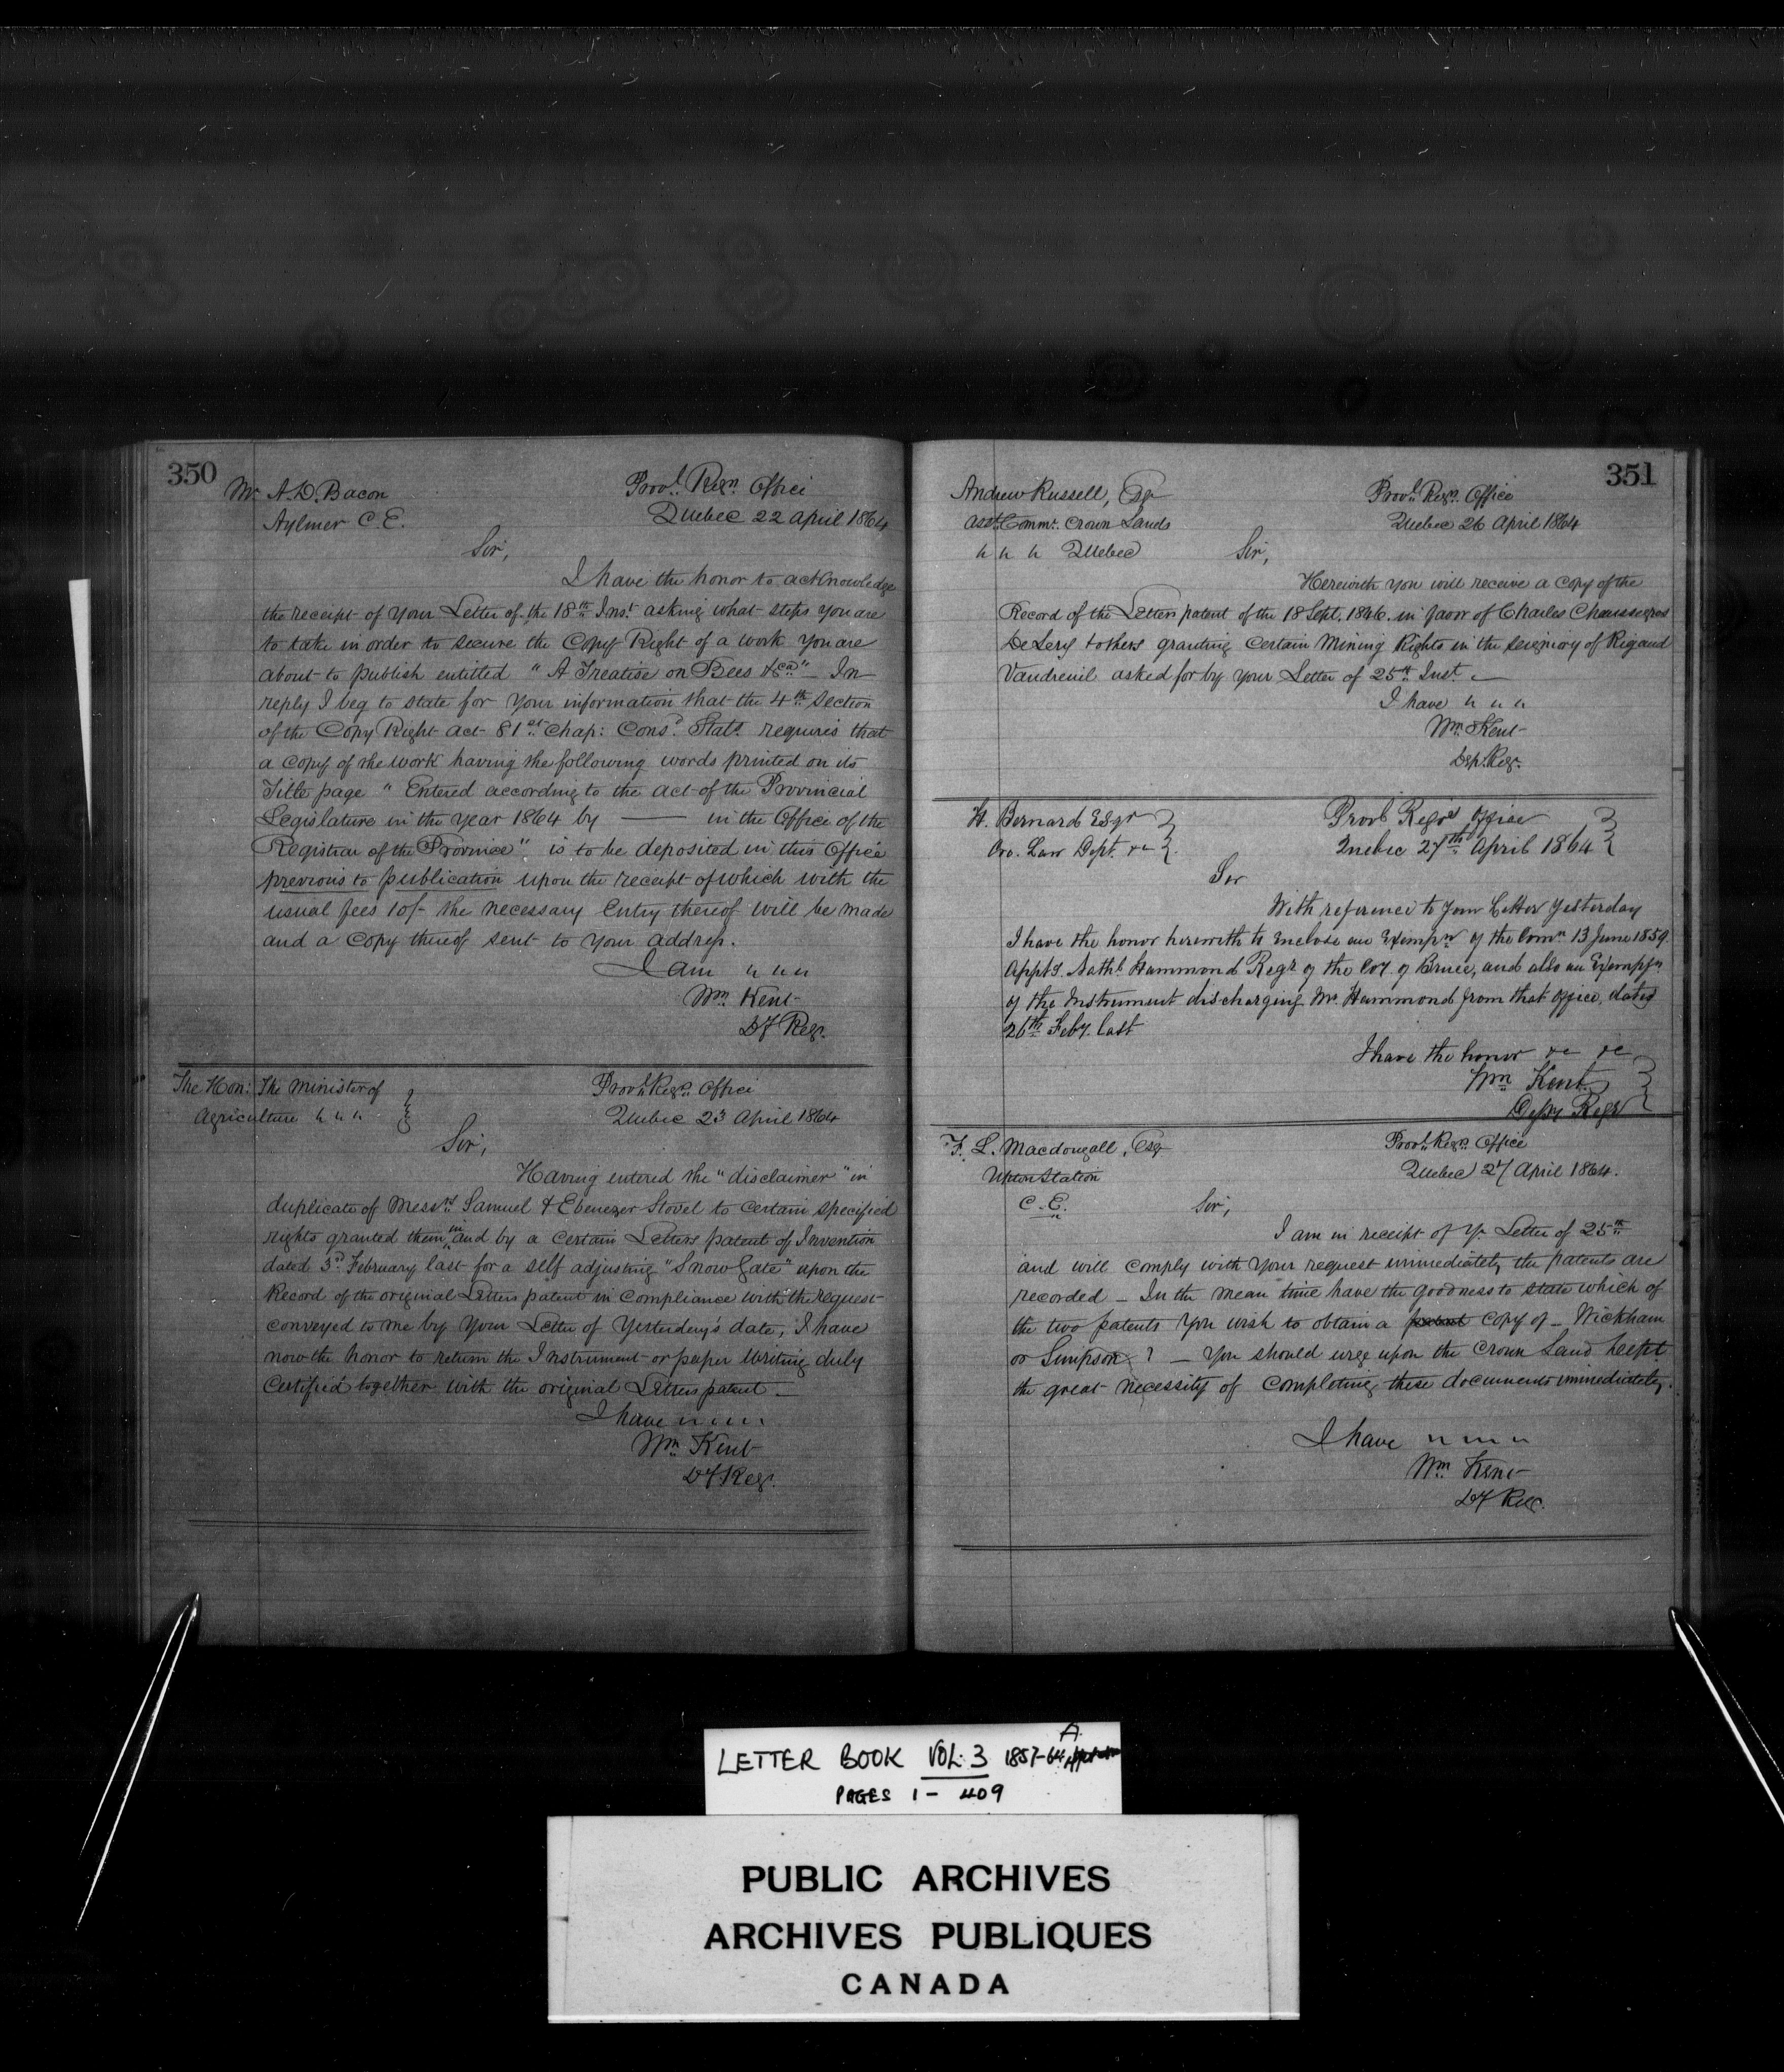 350
Mr. A. D. Bacon
Aylmer C. E.
Provl. Regrs. Office
Quebec 22 April 1864
Sir,
I have the honor to acknowledge
the receipt of your Letter of the 18th Inst. asking what steps you are
to take in order to secure the Copy Right of a work you are
about to publish entitled " A Treatise on Bees &ca" — In
reply I beg to state for your information that the 4th Section
of the Copy Right Act 81st Chap: Consd. Stats. requires that
a copy of the work having the following words printed on its
Title page " Entered according to the act of the Provincial
Legislature in the year 1864 by —— in the Office of the
Registrar of the Province", is to be deposited in this Office
previous to publication upon the receipt of which with the
usual fees 10/- the necessary Entry thereof will be made
and a copy thereof sent to your address.
I am " " "
Wm. Kent
Dy Reg.
The Hon: The Minister of
Agriculture " " "
Provl. Regrs. Office
Quebec 23 April 1864
Sir,
Having entered the "disclaimer" in
duplicate of Messrs Samuel & Ebenezer Stovel to certain specified
rights granted them in and by a certain Letters patent of Invention
dated 3d February last for a self adjusting "Snow Gate" upon the
Record of the original Letters patent in compliance with the request
conveyed to me by your Letter of Yesterday's date, I have
now the honor to return the Instrument or paper writing duly
certified together with the original Letters patent —
I have " " " "
Wm. Kent
Dy. Reg.
351
Andrew Russell, Esq
Asst. Commr. Crown Lands
" " " Quebec
Provl. Regrs. Office
Quebec 26 April 1864
Sir,
Herewith you will receive a copy of the
Record of the Letters patent of the 18 Sept. 1846 in favor of Charles Chaussegros
DeLery & others granting certain Mining Rights in the seigniory of Rigaud
Vaudreuil asked for by your Letter of 25th Inst. —
I have " " "
Wm. Kent
Dep. Reg.
H. Bernard Esqr
Cro. Law Dept. &c
Provl Regrs Office
Quebec 27th April 1864
Sir
With reference to your Letter yesterday
I have the honor herewith to enclose an Exempn of the Comn 13 June 1859
Apptg. Nathl. Hammond Regr of the Coy. of Bruce, and also an Exempfn
of the Instrument discharging Mr. Hammond from that office, dated
26th Feby. last
I have the honor &c &c
Wm Kent
Depy Regr
F. L. Macdougall, Esq
Upton Station
C. E.
Provl. Regrs. Office
Quebec 27 April 1864.
Sir,
I am in receipt of yr. Letter of 25th
and will comply with your request immediately the patents are
recorded — In the mean time have the goodness to state which of
the two patents you wish to obtain a copy of — Wickham
or Simpson ? — You should urge upon the Crown Land Deptt
the great necessity of completing these documents immediately.
I have " " " "
Wm. Kent
Dy Reg.
A
LETTER BOOK VOL. 3 1857-64
PAGES 1 - 409
PUBLIC ARCHIVES
ARCHIVES PUBLIQUES
CANADA